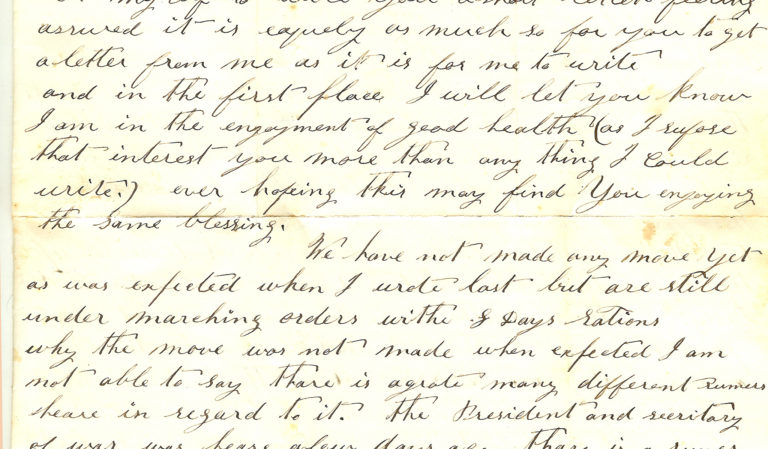 to write you a short letter feeling
assured it is equely as much so for you to get
a letter from me as it is for me to write
and in the first place I will let you know
I am in the enjoyment of good health (as I supose
that interest you more than any thing I could
write.) ever hopeing this may find you enjoying
the same blessing.
We have not made any move yet
as was expected when I wrote last but are still
under marching orders withe 8 Days rations
why the move was not made when expected I am
not able to say thare is agrate many different rumers
heare in regard to it. the President and secritary
of war was heare afew days ago thare is a rumer